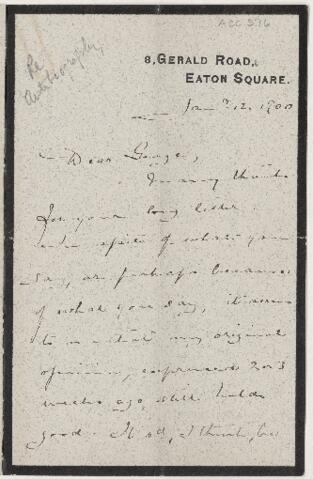 ACC 576
Re
Autobiography
8, GERALD ROAD,
EATON SQUARE.
Jan 12. 1900
Dear George,
Many thanks
for your long letter.
In spite of what you
say, or perhaps because
of what you say, it seems
to me that my original
opinion, expressed 2 or 3
weeks ago, still holds
good. If so, I think, be